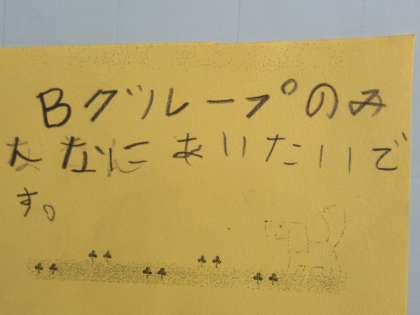 Bグループのみ
んなにあいたいで
す。